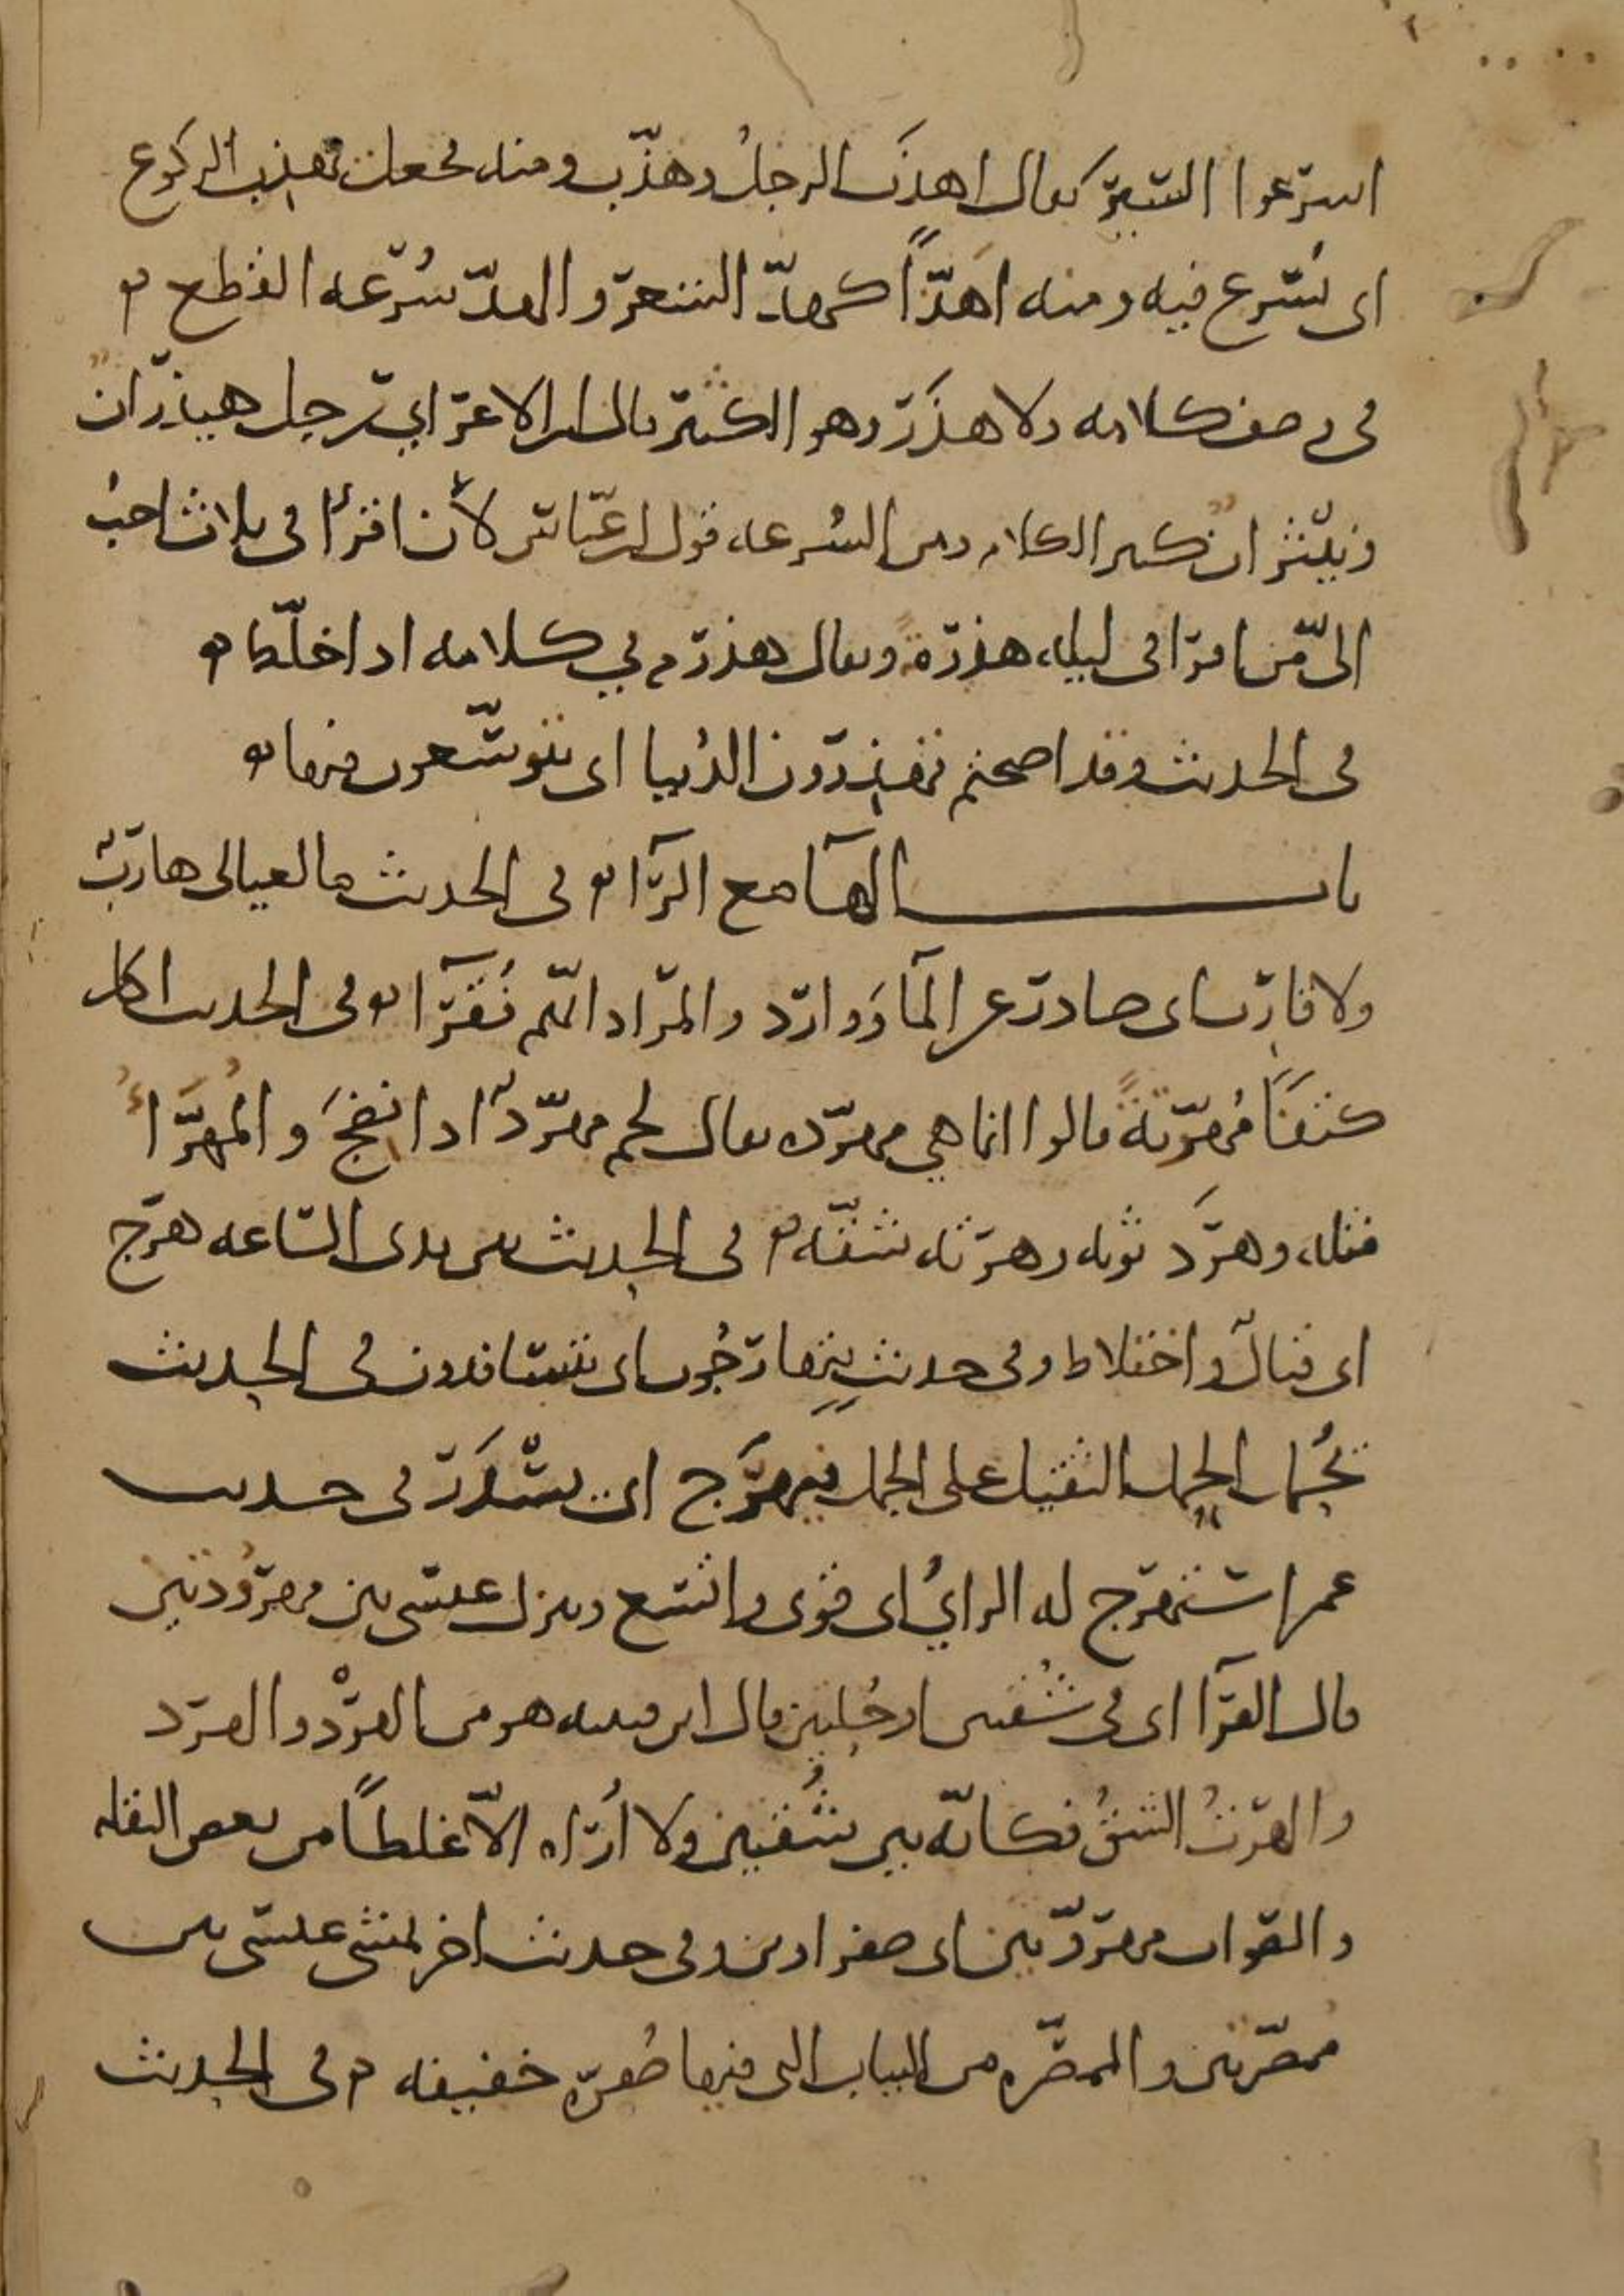 اسرعوا السير يقال اهذب الرجل وهذّب ومنه فجعل يهذب الركوع
اى يُسرع فيه ومنه اهذّاً كهذّ الشعر والهذّ سُرعه القطع ۞
فى وصف كلامه ولا هذَر وهو الكثير قال ابن الاعرابي رجل هيذران
ونيثران كثير الكلام ومن السُرعه قول ابن عباس لأن اقرأ فى ثلاث احبُ
الىّ من ان اقرا فى ليله هذرمة ويقال هذرم في كلامه اذا خلّط ۞
فى الحديث وقد اصبحتم تهذرون الدُنيا اى تتوسّعون فيها ۞
باب الهآ مع الرآ ۞ فى الحديث ما لعيالى هاربٌ
ولا قارب اى صادر عن المآ ووارد والمراد انهم فُقرآ ۞ فى الحديث اكل
كتفاً مُهرّتةً قالوا انما هي مهرّده يقال لحم مهرّدٌ اذا نضجَ والمُهرَّأُ
مثله وهردَ ثوبه وهرته شقّه ۞ فى الحديث بين يدى الساعه هرج
اى قتالٌ واختلاط وفى حديثٍ يتهارجُون اى يتسافدون فى الحديث
يُحمل الحمل الثقيل على الجمل فيهرَج اى يسْدَر فى حديث
عمر استهرج له الرايُ اى قوى واتسع وينزل عيسى بين مهرُودتين
قال الفرآ اى فى شُقتين او حُلتين قال ابن قتيبه هو من الهرْد والهرد
والهرتُ الشقُ فكانّه بين شُقتين ولا اُراه الّا غلطاً من بعض النقله
والصواب مهرودّتين اى صفراوين وفى حديث اخر يمشى عيسى بين
ممصّرتين والممصّره من الثياب التى فيها صُفرة خفيفه ۞ فى الحديث